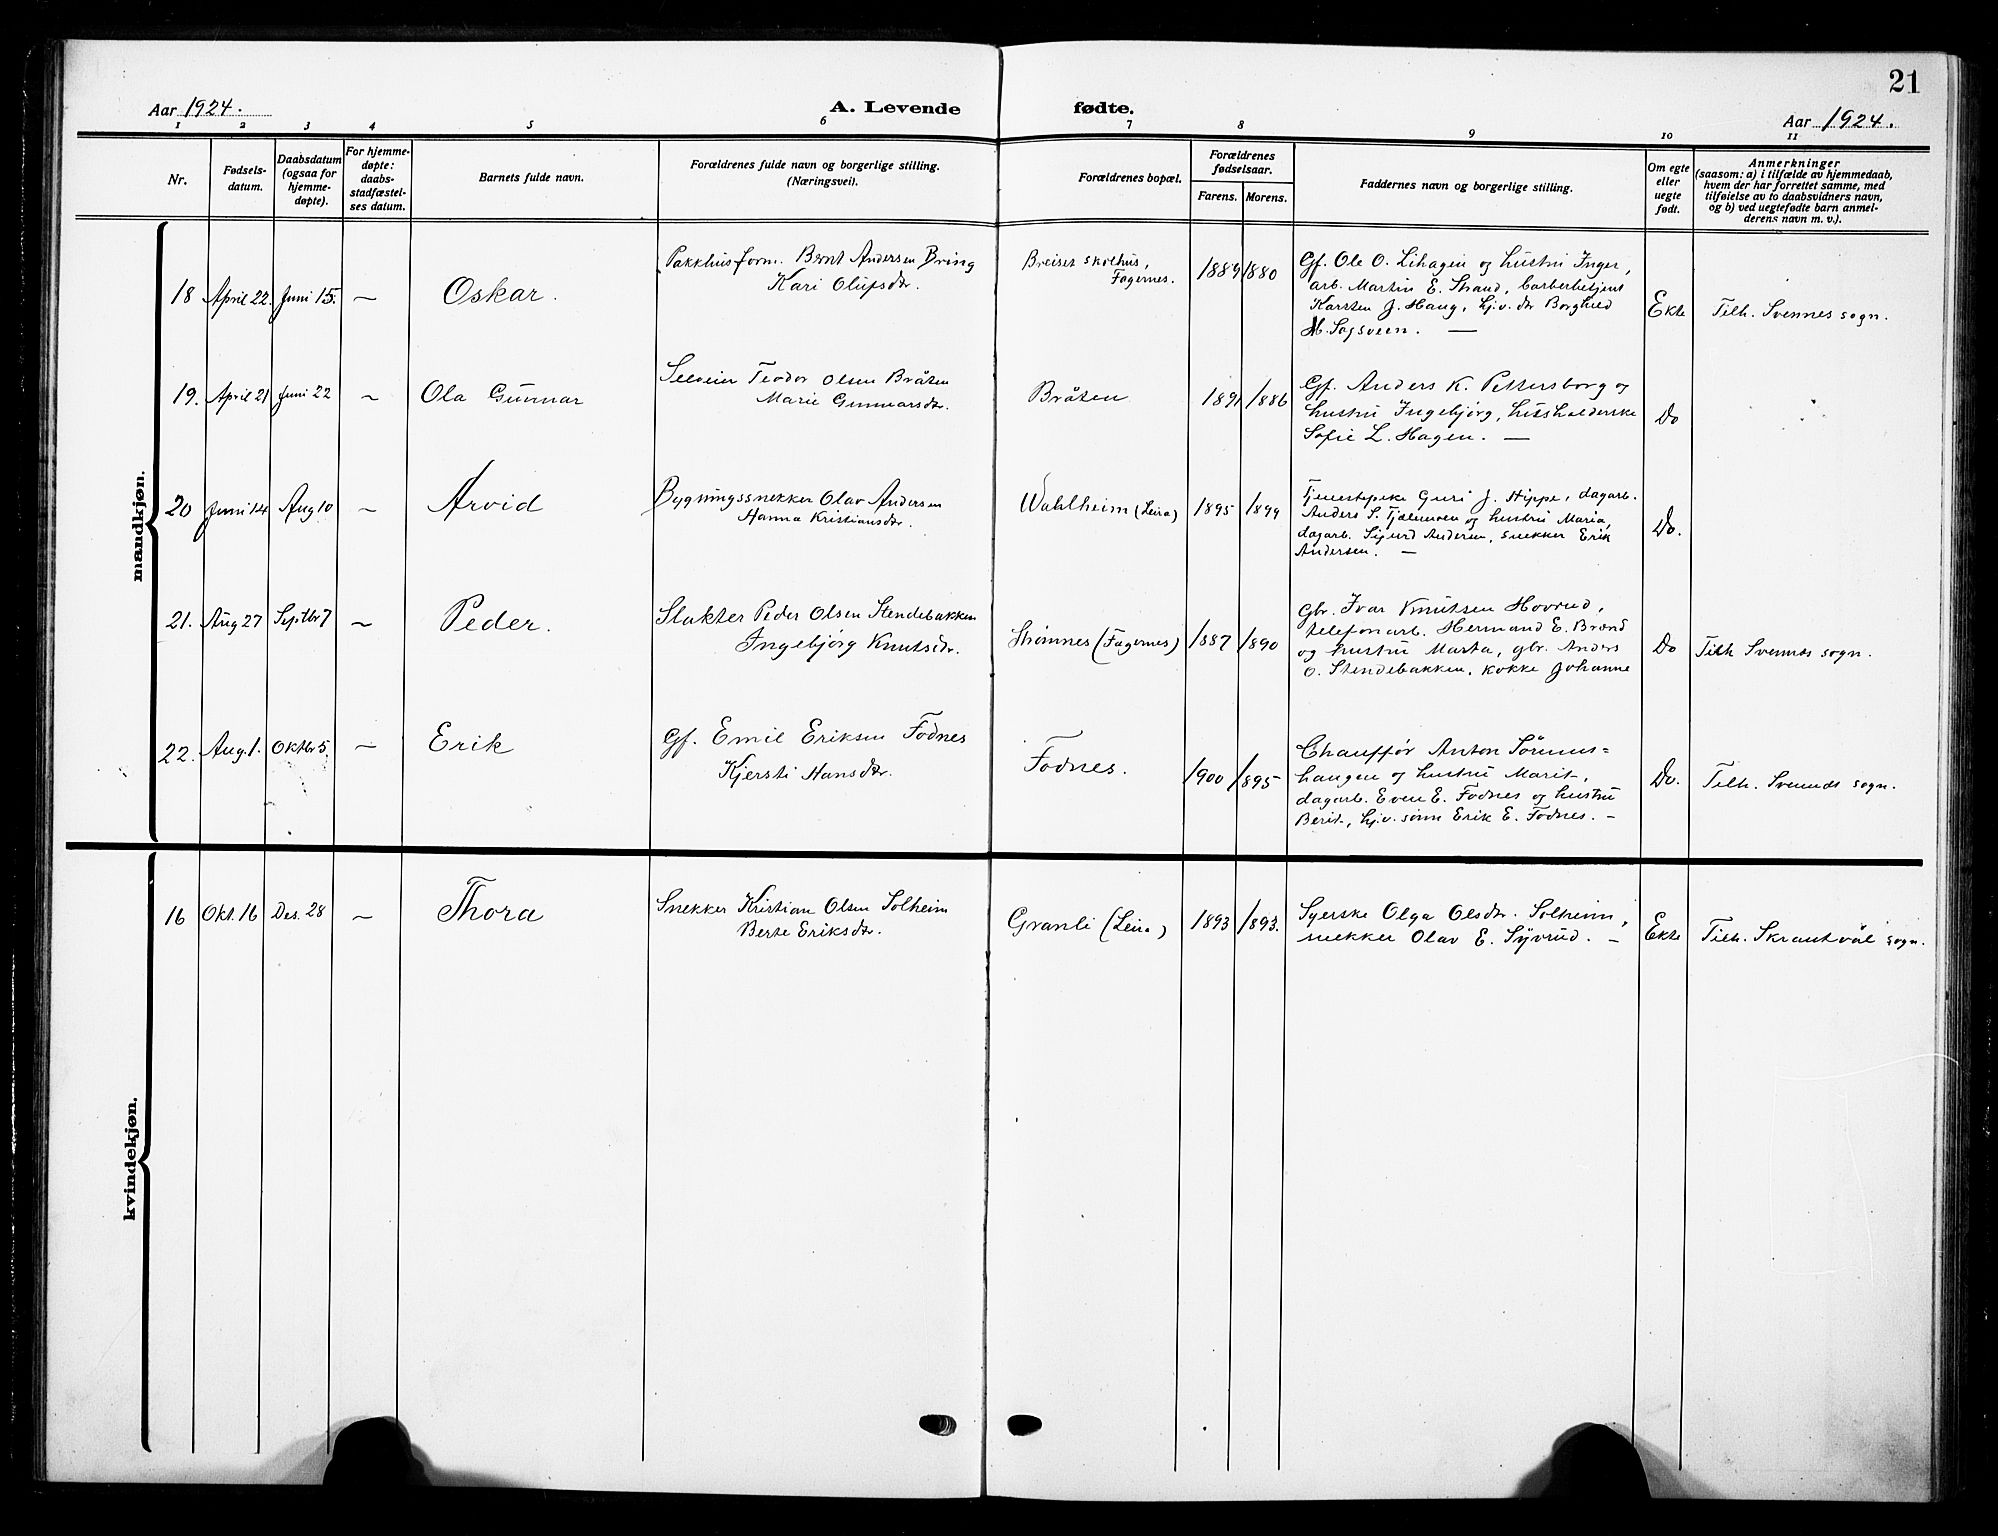 21
Aar 1924.
A. Levende fødte.
Aar 1924.
1 2 3 4 5 6 7 8 9 10 11
Nr.
Fødsels-
datum.
Daabsdatum
(ogsaa for
hjemme-
døpte).
For hjemme-
døpte:
daabs-
stadfæstel-
ses datum.
Barnets fulde navn.
Forældrenes fulde navn og borgerlige stilling.
(Næringsvei).
Forældrenes bopæl.
Forældrenes
fødselsaar.
Farens. Morens.
Faddernes navn og borgerlige stilling.
Om egte
eller
uegte
født.
Anmerkninger
(saasom: a) i tilfælde av hjemmedaab,
hvem der har forrettet samme, med
tilføielse av to daabsvidners navn,
og b) ved uegtefødte barn anmel-
derens navn m. v.).
mandkjøn.
18 April 22. Juni 15. – Oskar.
Pakkhusform. Bernt Andersen Bring
Kari Olufsdtr.
Breiset skolhus,
Fagernes.
1889 1880
Gf. Ole O. Lihagen og hustru Inger,
arb. Martin E. Strand, barberbetjent
Karsten J. Haug, hj.v. dtr Borghild
M. Sagsveen. —
Ekte
Tilh. Svennes sogn.
19. April 21 Juni 22 ~ Ola Gunnar
Teodor Olsen Bråten
Marie Gunnarsdtr.
Bråten
1891 1886
Gf. Anders K. Pettersborg og
hustru Ingebjørg, husholderske
Sofie L. Hagen. —
Do
20 Juni 14 Aug 10 ~ Arvid
Bygningssnekker Olav Andersen
Hanna Kristiansdtr.
Wahlheim (Leira)
1895 1899
Tjenestepike Guri J. Hippe, dagarb.
Anders S. og hustru Maria,
dagarb. Sigurd Andersen, snekker Erik
Andersen. —
Do.
21. Aug 27 Septbr 7 ~ Peder.
Slakter Peder Olsen Stendebakken
Ingebjørg Knutsdtr.
Strømnes (Fagernes)
1887 1890
Gbr. Ivar Knutsen Hovrud,
telefonarb. Hermand E. Brænd
og hustru Marta, gbr. Anders
O. Stendebakken, kokke Johanne
Do
Tilh Svennes sogn.
22. Aug. 1. Oktbr 5 ~ Erik
Gf. Emil Eriksen Fodnes
Kjersti Hansdtr.
Fodnes.
1900 1895
Chauffør Anton Sørums-
haugen og hustru Marit,
dagarb. Even E. Fodnes og hustru
Berit, hj.v. sønn Erik E. Fodnes. –
Do.
Tilh. Svennes sogn.
kvindekjøn.
16 Okt. 16 Des. 28 ~ Thora
Snekker Kristian Olsen Solheim
Berte Eriksdtr.
Granli (Leira)
1893 1893.
Syerske Olga Olsdtr. Solheim,
snekker Olav E. Syvrud. –
Ekte
Tilh. Skrautvål sogn.